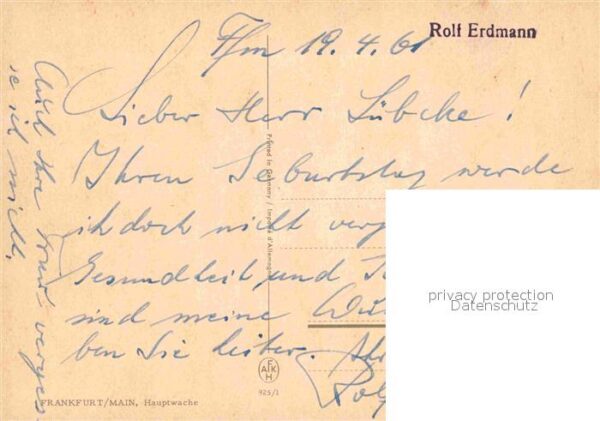 Rolf Erdmann
Ffm 19.4.61
Lieber Herr Lübcke!
Ihren Geburtstag werde
ich doch nicht verg
Gesundheit und
sind meine
ben Sie heiter.
Rolf
Auch Ihre Frau verges-
se ich nicht.
Printed in Germany / Imprimé d'Allemagne
privacy protection
Datenschutz
AFKH
925/1
FRANKFURT/MAIN, Hauptwache